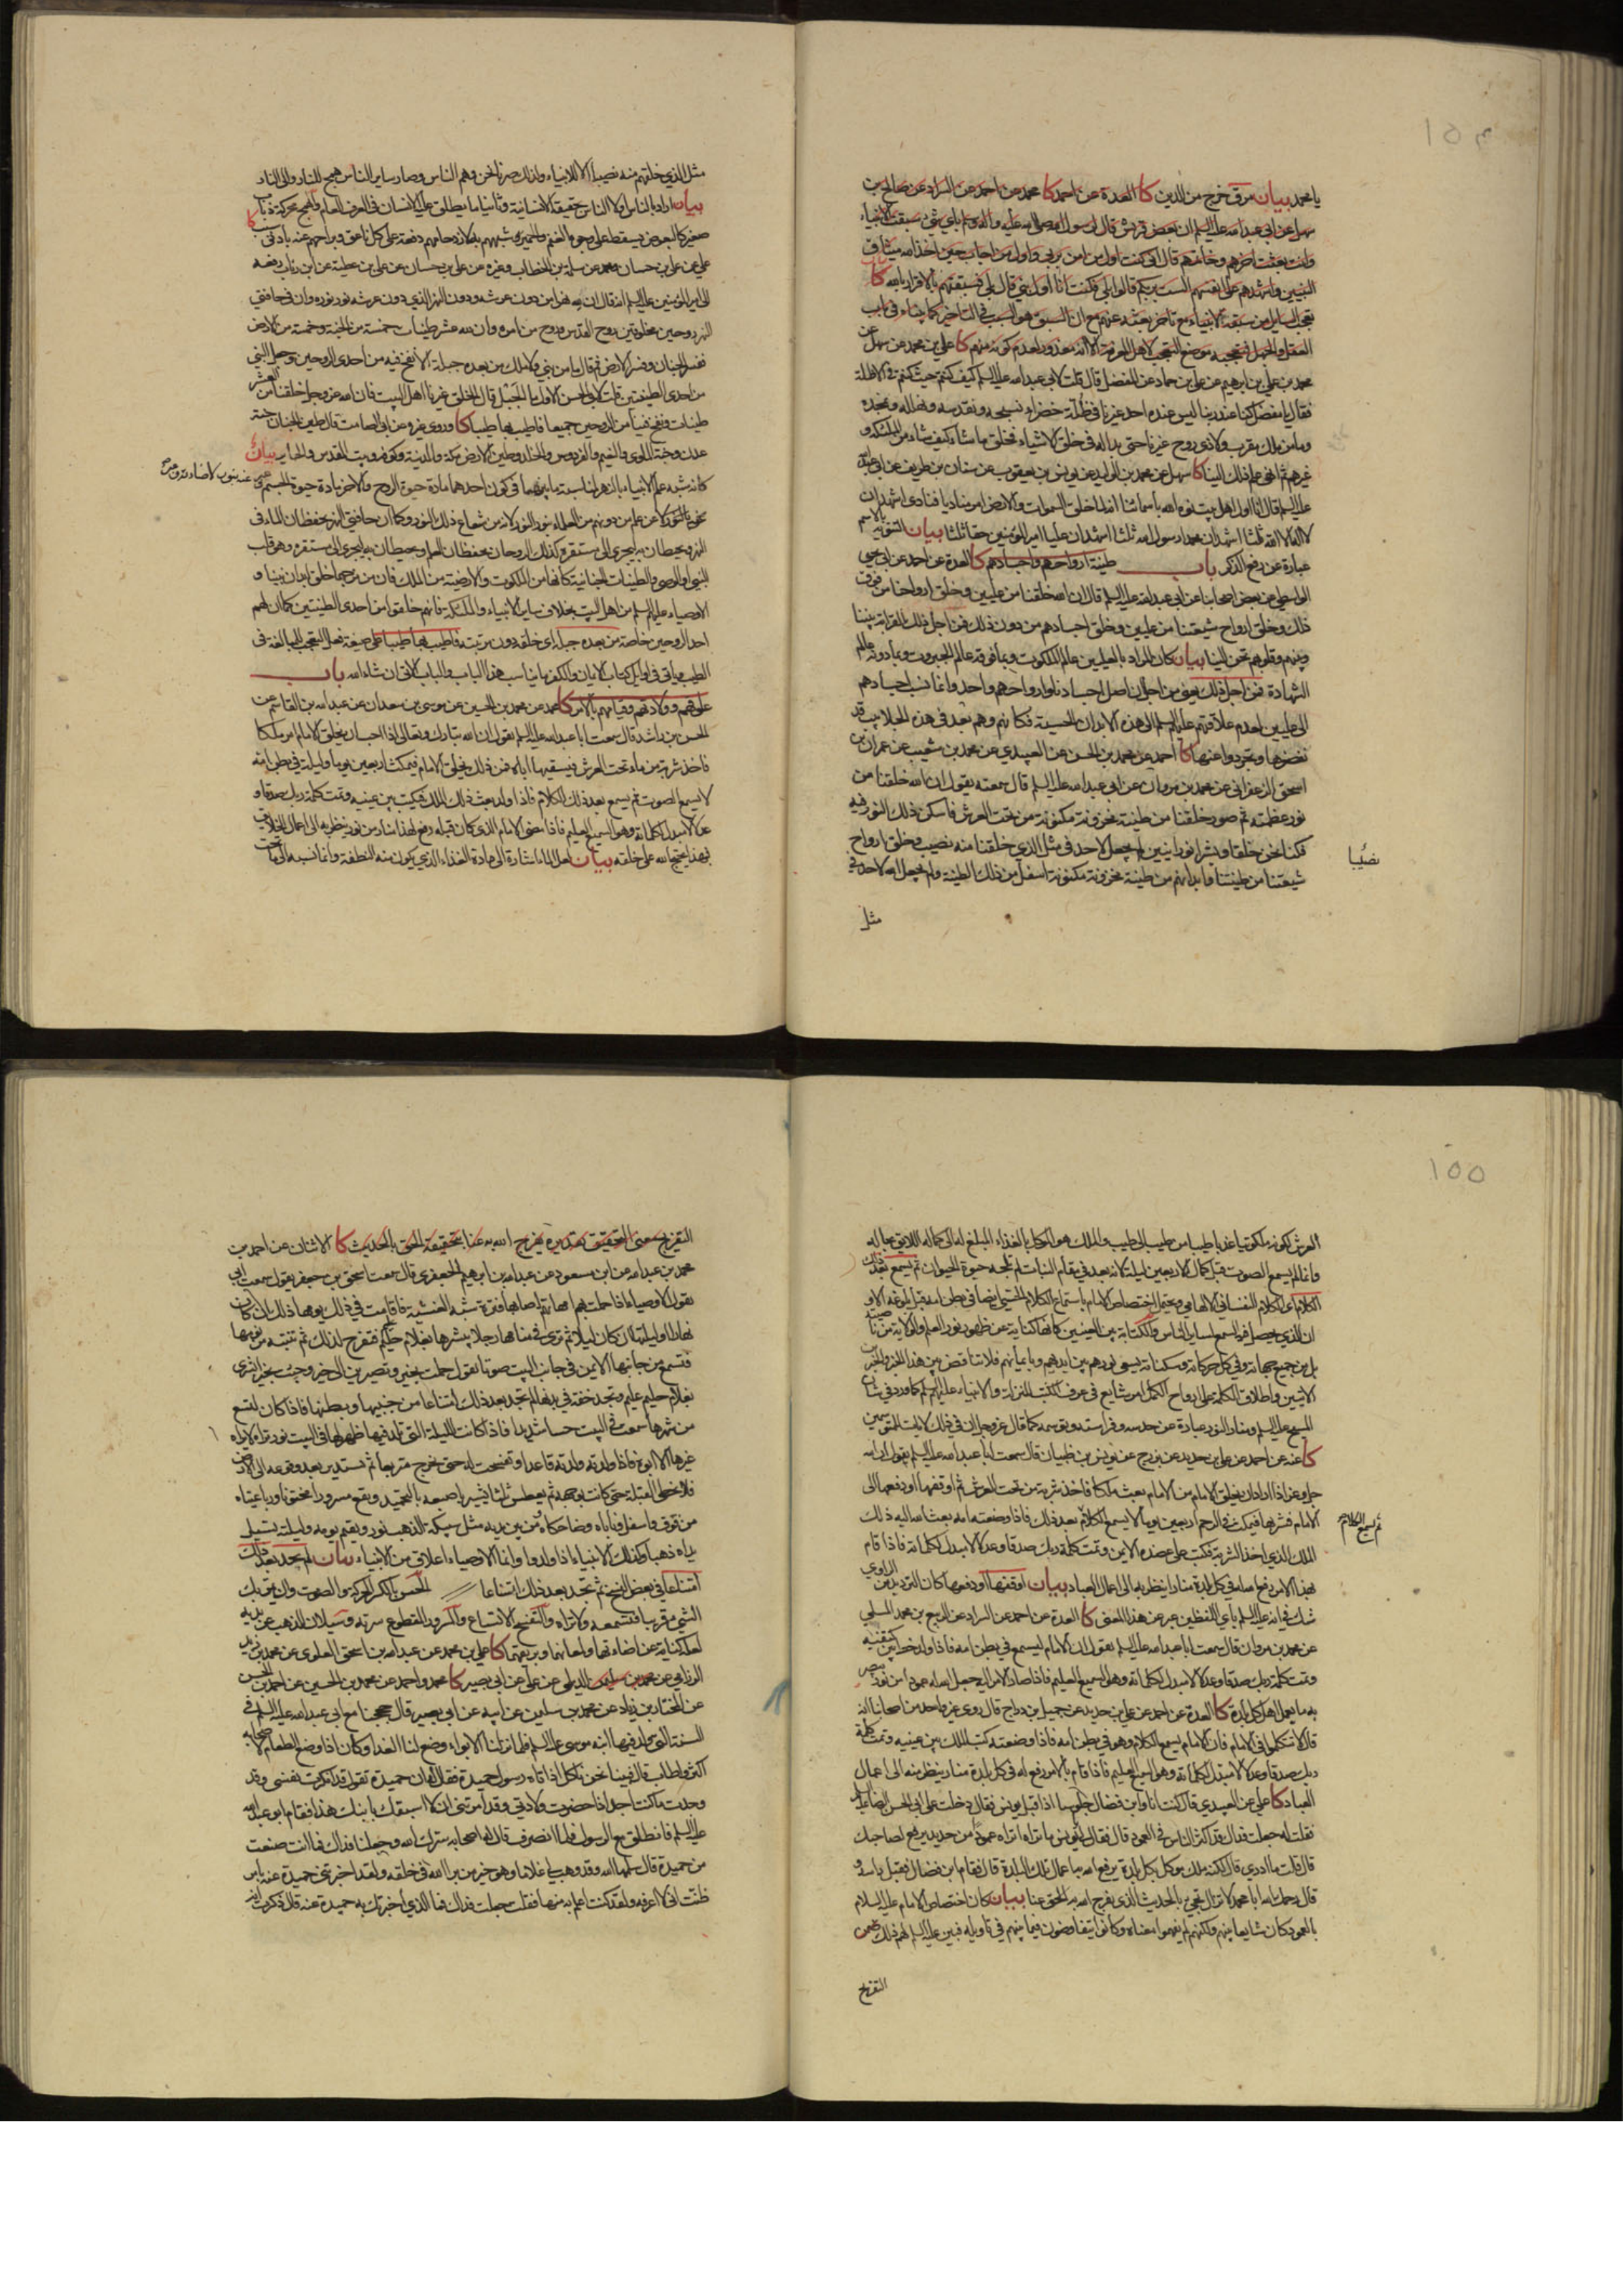 ١٥٤
يا محمد بيان مرق خرج من الدين كا العدة عن احمد كا محمد عن احمد عن السراد عن صالح بن
سهل عن ابي عبد الله عليه السلم ان بعض قريش قال لرسول الله صلى الله عليه وآله وسلم باي شيء سبقت الانبياء
وانت بعثت آخرهم وخاتمهم قال اني كنت اول من امن بربي واول من اجاب حين اخذ الله ميثاق
النبيين واشهدهم على انفسهم الست بربكم قالوا بلى فكنت انا اول نبي قال بلى فسبقتهم بالاقرار بالله
تعجب السايل من سبقه الانبياء مع تاخر بعثته عنهم مع ان السبق هو السبب في التاخير كما بيناه في باب
العقل والجهل فتعجبه موضع التعجب لاهل المعرفة الا انه معذور لعدم كونه منهم كا علي بن محمد عن سهل عن
محمد بن علي بن ابرهيم عن علي بن حماد عن المفضل قال قلت لابي عبد الله عليه السلم كيف كنتم حيث كنتم في الاظلة
فقال يا مفضل كنا عند ربنا ليس عنده احد غيرنا في ظلة خضراء نسبحه ونقدسه ونهلله ونمجده
وما من ملك مقرب ولا ذي روح غيرنا حتى بدا له في خلق الاشياء فخلق ما شاء كيف شاء من الملئكة و
غيرهم ثم انهى علم ذلك الينا كا سهل عن محمد بن الوليد عن يونس بن يعقوب عن سنان بن طريف عن ابي عبد الله
عليه السلم قال انا اول اهل بيت نوه الله باسمائنا انه لما خلق السموات والارض امر مناديا فنادى اشهد ان
لا اله الا الله ثلثا اشهد ان محمدا رسول الله ثلثا اشهد ان عليا امير المؤمنين حقا ثلثا بيان التنويه بالاسم
عبارة عن رفع الذكر باب طينة ارواحهم واجسادهم كا العدة عن احمد عن ابي يحيى
الواسطي عن بعض اصحابنا عن ابي عبد الله عليه السلم قال ان الله خلقنا من عليين وخلق ارواحنا من فوق
ذلك وخلق ارواح شيعتنا من عليين وخلق اجسادهم من دون ذلك فمن اجل ذلك القرابة بيننا
وبينهم وقلوبهم تحن الينا بيان كان المراد بالعليين عالم الملكوت وبما فوقه عالم الجبروت وبما دونه عالم
الشهادة فمن اجل ذلك يعني من اجل ان اصل اجسادنا وارواحهم واحد وانما نسب اجسادهم
الى عليين لعدم علاقتهم عليهم السلم الى هذه الابدان الحسية فكانهم وهم بعد في هذه الجلابيب قد
نفضوها وتجردوا عنها كا احمد عن محمد بن الحسن عن العبيدي عن محمد بن شعيب عن عمران بن
اسحق الزعفراني عن محمد بن مروان عن ابي عبد الله عليه السلم قال سمعته يقول ان الله خلقنا من
نور عظمته ثم صور خلقنا من طينة مخزونة مكنونة من تحت العرش فاسكن ذلك النور فيه
فكنا نحن خلقا وبشرا نورانيين لم يجعل لاحد في مثل الذي خلقنا منه نصيب وخلق ارواح
نصيبا
شيعتنا من طينتنا وابدانهم من طينة مخزونة مكنونة اسفل من ذلك الطينة ولم يجعل الله لاحد في
مثل
مثل الذي خلقهم منه نصيبا الا للانبياء ولذلك صرنا نحن وهم الناس وصار ساير الناس همج للنار والى النار
بيان اراد بالناس اولا الناس بحقيقة الانسانية وثانيا ما يطلق عليه الانسان في العرف العام والهمج محركة ذباب
صغير كالبعوض يسقط على وجوه الغنم والحمير شبههم به لازدحامهم دفعة على كل ناعق وبراحهم عنه بادنى سبب كا
علي عن علي بن حسان ومحمد عن سلمة بن الخطاب وغيره عن علي بن حسان عن علي بن عطية عن ابن رئاب رفعه
الى امير المؤمنين عليه السلم انه قال ان لله نهرا من دون عرشه ودون النهر الذي دون عرشه نور نوره وان في حافتي
النهر روحين مخلوقتين روح القدس وروح من امره وان لله عشر طينات خمسة من الجنة وخمسة من الارض
ففسر الجنان وفسر الارض ثم قال ما من نبي ولا ملك من بعده جبله الا نفخ فيه من احدى الروحين وجعل النبي
من احدى الطينتين قلت لابي الحسن الاول ما الجبل قال الخلق غيرنا اهل البيت فان الله عز وجل خلقنا من العشر
طينات ونفخ فينا من الروحين جميعا فاطيب بها طيبا كا وروى غيره عن ابي الصامت قال طين الجنان جنة
عدن وجنة المأوى والنعيم والفردوس والخلد وطين الارض مكة والمدينة وكوفة وبيت المقدس والحاير بيان
كانه شبه علم الانبياء بالنهر لمناسبة ما بينهما في كون احدهما مادة حيوة الروح والاخر مادة حيوة الجسم
نحو بالنور لا عن علم من دونهم من العلماء نور النور لانه من شعاع ذلك النور وكما ان حافتي النهر يحفظان الماء في
النهر ويحيطان به ليجري الى مستقره كذلك الروحان يحفظان العلم ويحيطان به ليجري الى مستقره وهو قلب
النبي او الوصي والطينات الجنانية كانها من الملكوت والارضية من الملك فان من مزجهما خلق ابدان نبينا و
الاوصياء عليهم السلم من اهل البيت بخلاف ساير الانبياء والملئكة فانهم خلقوا من احدى الطينتين كما ان لهم
احد الروحين خاصة من بعده جبله اي خلقه دون مرتبته فاطيب بها طيبا على صيغة فعل التعجب للمبالغة في
الطيب وياتي في اوايل كتاب الايمان والكفر ما يناسب هذا الباب والباب الاتي ان شاء الله باب
علوقهم وولادتهم وقيامهم بالامر كا محمد عن محمد بن الحسين عن موسى بن سعدان عن عبد الله بن القاسم عن
الحسن بن راشد قال سمعت ابا عبد الله عليه السلم يقول ان الله تبارك وتعالى اذا احب ان يخلق الامام امر ملكا
فاخذ شربة من ماء تحت العرش فيسقيها اباه فمن ذلك يخلق الامام فيمكث اربعين يوما وليلة في بطن امه
لا يسمع الصوت ثم يسمع بعد ذلك الكلام فاذا ولد بعث ذلك الملك فيكتب بين عينيه وتمت كلمة ربك صدقا و
عدلا لا مبدل لكلماته وهو السميع العليم فاذا مضى الامام الذي كان قبله رفع لهذا منار من نور ينظر به الى اعمال الخلايق
فبهذا يحتج الله على خلقه بيان لعل الماء اشارة الى مادة الغذاء الذي يكون منه النطفة وانما نسبه الى ما تحت
١٥٥
العرش لكونه ملكوتيا عذبا طيبا من طيب الى طيب والملك هو الموكل بالغذاء المبلغ له الى كماله اللايق بحاله
وانما لم يسمع الصوت قبل كمال الاربعين ليلة لانه بعد في مقام النبات لم تلجه حيوة الحيوان ثم يسمع بعد ذلك
الكلام اي الكلام النفساني الالهامي ويحتمل اختصاص الامام باستماع الكلام الحسي ايضا في بطن امه قبل بلوغه الاوان
ان الذي يحصل فيه السمع لساير الناس والكتابة بين العينين كانها كناية عن ظهور نور العلم والولاية من ناصيته
بل من جميع جهاته وفي كل حركاته وسكناته يسعى نورهم بين ايديهم وبايمانهم فلا تناقض بين هذا الخبر والخبرين
الاتيين واطلاق الكلمة على ارواح الكمل امر شايع في عرف الكتب المنزلة والانبياء عليهم السلم كما ورد في شان
المسيح عليه السلم ومنار النور عبارة عن حدسه وفراسته وتوسمه كما قال عز وجل ان في ذلك لايات للمتوسمين
كا عنه عن احمد عن علي بن حديد عن بزرج عن يونس بن ظبيان قال سمعت ابا عبد الله عليه السلم يقول ان الله
جل وعز اذا اراد ان يخلق الامام من الامام بعث ملكا فاخذ شربة من تحت العرش ثم اوقفها او دفعها الى
الامام فشربها فيمكث في الرحم اربعين يوما لا يسمع الكلام ثم يسمع الكلام بعد ذلك فاذا وضعته امه بعث الله اليه ذلك
الملك الذي اخذ الشربة فكتب على عضده الايمن وتمت كلمة ربك صدقا وعدلا لا مبدل لكلماته فاذا قام
بهذا الامر رفع الله له في كل بلدة منارا ينظر به الى اعمال العباد بيان اوقفها او دفعها كان الترديد من الراوي
شك في انه عليه السلم باي اللفظين عبر عن هذا المعنى كا العدة عن احمد عن السراد عن الربيع بن محمد المسلي
عن محمد بن مروان قال سمعت ابا عبد الله عليه السلم يقول ان الامام ليسمع في بطن امه فاذا ولد خط بين كتفيه
وتمت كلمة ربك صدقا وعدلا لا مبدل لكلماته وهو السميع العليم فاذا صار الامر اليه جعل الله له عمودا من نور يبصر
به ما يعمل اهل كل بلدة كا العدة عن احمد عن علي بن حديد عن جميل بن دراج قال روى غير واحد من اصحابنا انه
قال لا تتكلموا في الامام فان الامام يسمع الكلام وهو في بطن امه فاذا وضعته كتب الملك بين عينيه وتمت كلمة
ربك صدقا وعدلا لا مبدل لكلماته وهو السميع العليم فاذا قام بالامر رفع له في كل بلدة منار ينظر منه الى اعمال
العباد كا علي عن العبيدي قال كنت انا وابن فضال جلوسا اذ اقبل يونس فقال دخلت على ابي الحسن الرضا عليه السلم
فقلت له جعلت فداك قد اكثر الناس في العمود قال فقال لي يا يونس ما تراه اتراه عمودا من حديد يرفع لصاحبك
قال قلت ما ادري قال لكنه ملك موكل بكل بلدة يرفع الله به اعمال تلك البلدة قال فقام ابن فضال فقبل راسه و
قال رحمك الله ابا محمد لا تزال تجيء بالحديث الذي يفرج الله به الحق عنا بيان كان اختصاص الامام عليه السلام
بالعمود كان شايعا بينهم ولكنهم لم يفهموا معناه وكانوا يتفاوضون فيما بينهم في تاويله فبين عليه السلم لهم ذلك
التفريح
التفريح بمعنى
بتحقيقه الحق بالحديث كا الاثنان عن احمد بن
محمد بن عبد الله عن ابن مسعود عن عبد الله بن ابرهيم الجعفري قال سمعت اسحق بن جعفر يقول سمعت ابي
يقول الاوصياء اذا حملت بهم امهاتهم اصابها فترة شبه الغشية فاقامت في ذلك يومها ذلك ان كان
نهارا او ليلتها ان كان ليلا ثم ترى في منامها رجلا يبشرها بغلام عليم حليم فتفرح لذلك ثم تنتبه من نومها
فتسمع من جانبها الايمن في جانب البيت صوتا يقول حملت بخير وتصيرين الى خير وجئت بخير ابشري
بغلام حليم عليم وتجد خفة في بدنها لم تجد بعد ذلك امتناعا من جنبيها وبطنها فاذا كان لتسع
من شهرها سمعت في البيت حسا شديدا فاذا كانت الليلة التي تلد فيها ظهر لها في البيت نور تراه لا يراه
غيرها الا ابوه فاذا ولدته ولدته قاعدا وتفتحت له حتى يخرج متربعا ثم يستدير بعد وقوعه الى الارض
فلا يخطي القبلة حتى كانت بوجهه ثم يعطس ثلثا يشير باصبعه بالتحميد ويقع مسرورا مختونا ورباعيتاه
من فوق واسفل وناباه وضاحكاه ومن بين يديه مثل سبيكة الذهب نور ويقيم يومه وليلته تسيل
يداه ذهبا وكذلك الانبياء اذا ولدوا وانما الاوصياء اعلاق من الانبياء بيان لم تجد بعد ذلك
امتناعا في بعض النسخ ثم تجد بعد ذلك اتساعا الحس بالكسر الحركة والصوت وان يمر بك
الشيء قريبا فتسمعه ولا تراه والتفتح الاتساع والمسرور المقطوع سرته وسيلان الذهب عن يديه
لعله كناية عن اضاءتهما ولمعانهما وبريقهما كا علي بن محمد عن عبد الله بن اسحق العلوي عن محمد بن زيد
الرزامي عن محمد بن سليمن الديلمي عن علي عن ابي بصير كا محمد واحمد عن محمد بن الحسين عن احمد بن الحسن
عن المختار بن زياد عن محمد بن سليمن عن ابيه عن ابي بصير قال حججنا مع ابي عبد الله عليه السلم في
السنة التي ولد فيها ابنه موسى عليه السلم فلما نزلنا الابواء وضع لنا الغداء وكان اذا وضع الطعام لاصحابه
اكثر واطاب قال فبينا نحن ناكل اذ اتاه رسول حميدة فقال له ان حميدة تقول قد انكرت نفسي وقد
وجدت ما كنت اجد اذا حضرت ولادتي وقد امرتني ان لا اسبقك بابنك هذا فقام ابو عبد الله
عليه السلم فانطلق مع الرسول فلما انصرف قال له اصحابه سرك الله وجعلنا فداك فما انت صنعت
من حميدة قال سلمها الله وقد وهب لي غلاما وهو خير من برا الله في خلقه ولقد اخبرتني حميدة عنه بامر
ظنت اني لا اعرفه ولقد كنت اعلم به منها فقلت جعلت فداك فما الذي اخبرتك به حميدة عنه قال ذكرت انه